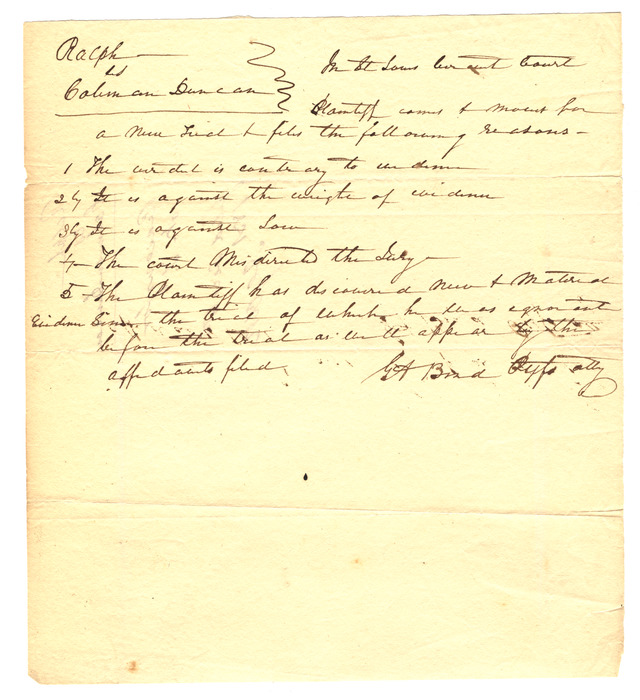 Ralph
vs
Coleman Duncan
In St Louis Circuit Court
Plaintiff comes & moves for
a new trial & files the following reasons -
1 The verdict is contrary to evidence
2ly It is against the weight of evidence
3ly It is against Law
4 - The court Misdirected the Jury -
5 - The Plaintiff has discovered new & Material
Evidence Since the trial of which he was ignorant
before the trial as will appear by the
affidavits filed
Bird Plffs atty